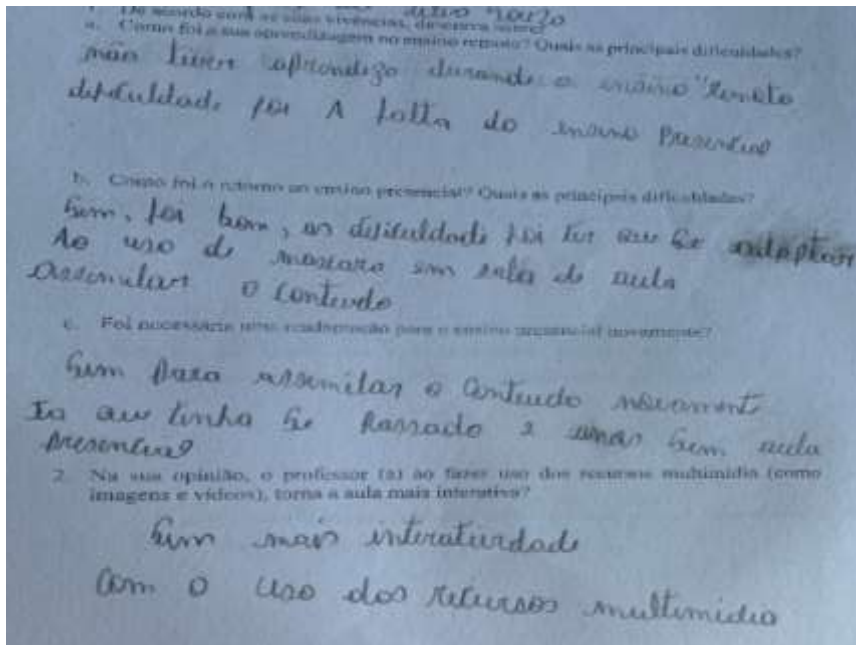 ativo razo
1. De acordo com as suas vivências, descreva sobre:
a. Como foi a sua aprendizagem no ensino remoto? Quais as principais dificuldades?
não tiver aprendizo durande o ensino "Remoto
dificuldade foi A falta do ensino Presencial
b. Como foi o retorno ao ensino presencial? Quais as principais dificuldades?
Sim, foi bom, as dificuldade foi ter que se adaptar
Ao uso de mascara em sala de aula
assimilar o conteudo
c. Foi necessária uma readaptação para o ensino presencial novamente?
Sim para assimilar o conteudo novament
Ja que tinha se Passado 2 anos sem aula
presencial
2. Na sua opinião, o professor (a) ao fazer uso dos recursos multimídia (como
imagens e vídeos), torna a aula mais interativa?
Sim mais interatividade
com o uso dos recursos multimidia